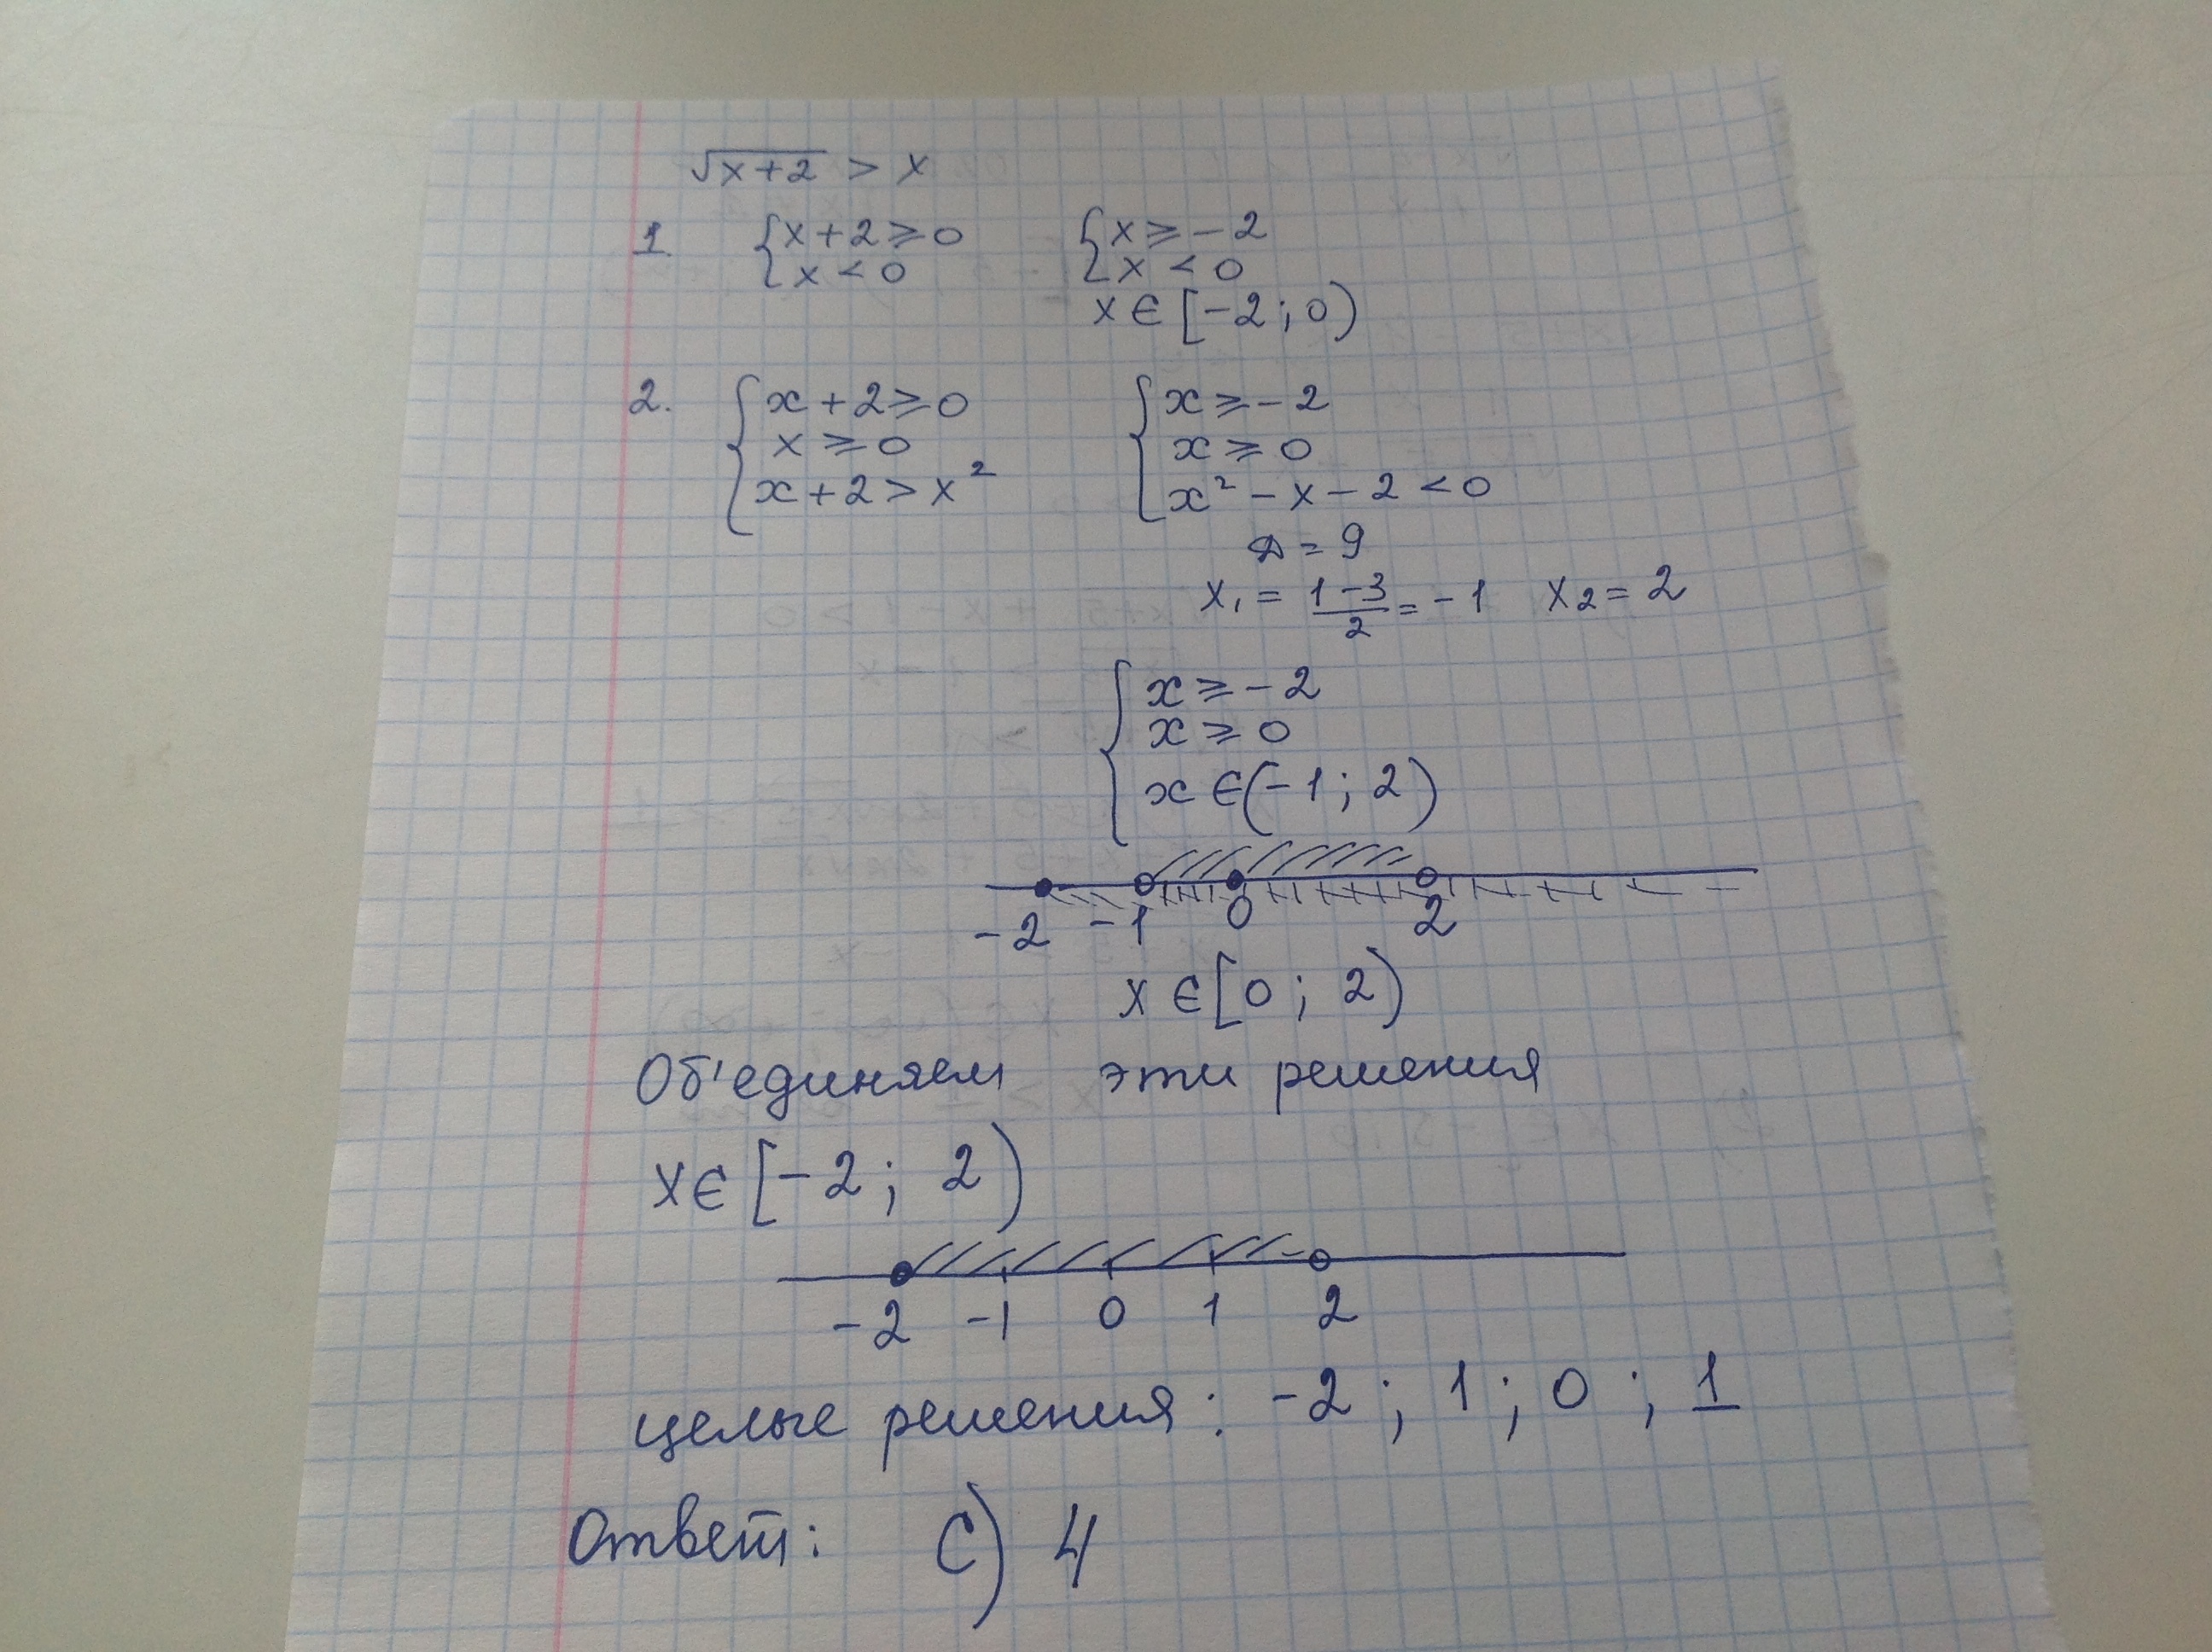 √x+2 > x
1. {x+2≥0 {x≥-2
x<0 x<0
x∈[-2;0)
2. {x+2≥0 {x≥-2
x≥0 x≥0
x+2>x² x²-x-2<0
D=9
x₁ = (1-3)/2 = -1 x₂ = 2
{x≥-2
x≥0
x∈(-1; 2)
-2 -1 0 2
x∈[0; 2)
Об'единяем эти решения
x∈[-2; 2)
-2 -1 0 1 2
целые решения: -2; 1; 0; 1
Ответ: С) 4